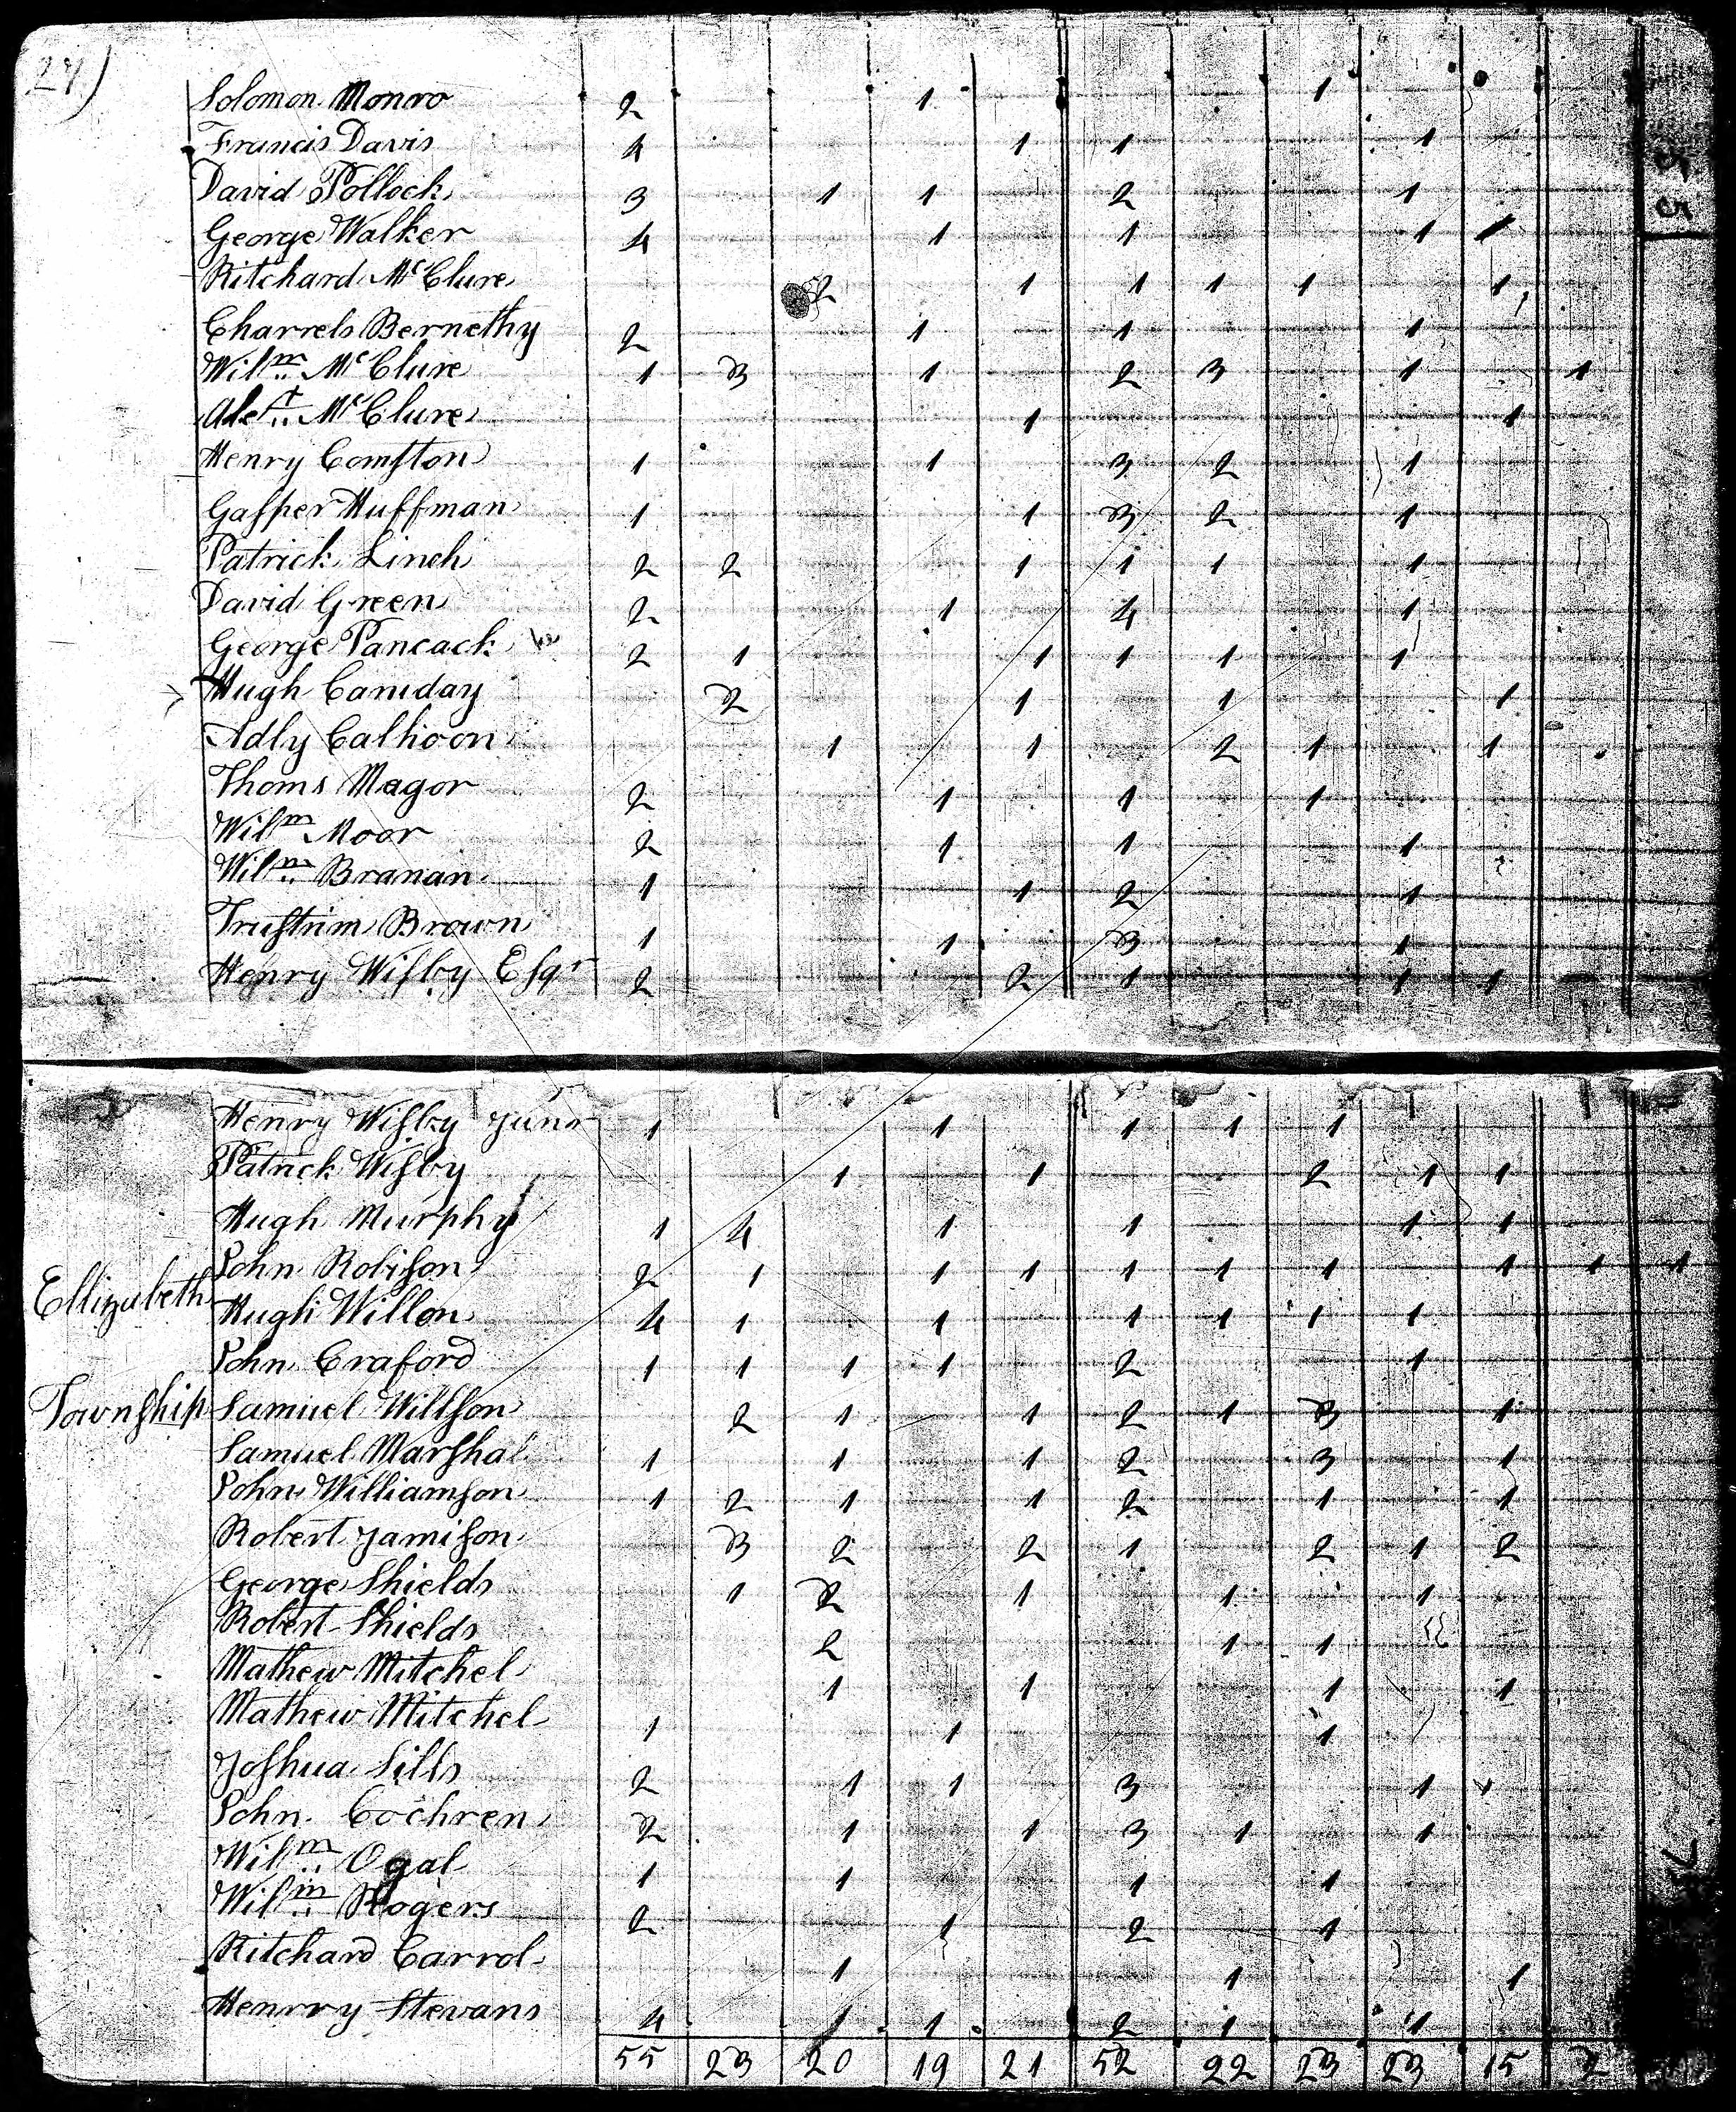 27)
Solomon Monro 2 1 1
Francis Davis 4 1 1 1
David Pollock 3 1 1 2 1
George Walker 4 1 1 1 1
Ritchard McClure 2 1 1 1 1 1
Charrels Bernethy 2 1 1 1
Wilm McClure 1 3 1 2 3 1 1
McClure 1 1
Henry Comston 1 1 3 2 1
Gasper Huffman 1 1 3 2 1
Patrick Linch 2 2 1 1 1 1
David Green 2 1 4 1
George Pancack 2 1 1 1 1 1
Hugh Caniday 2 1 1 1
Adly Calhoon 1 1 2 1 1
Thoms Magor 2 1 1 1
Wilm Moor 2 1 1 1
Wilm Branan 1 1 2 1
Trustrim Brown 1 1 3 1
Henry Wisby Esqr 2 2 1 1 1
Henry Wisby Junr 1 1 1 1 1
Patrick Wisby 1 1 2 1 1
Hugh Murphy 1 4 1 1 1 1
John Robison 2 1 1 1 1 1 1 1 1 1
Ellizabeth
Hugh Willon 4 1 1 1 1 1 1
John Craford 1 1 1 1 2 1
Township
Samuel Willson 2 1 1 2 1 3 1
Samuel Marshal 1 1 1 2 3 1
John Williamson 1 2 1 1 2 1 1
Robert Jamison 3 2 2 1 2 1 2
George Shields 1 2 1 1 1
Robert Shields 2 1 1
Mathew Mitchel 1 1 1 1
Mathew Mitchel 1 1 1
Joshua Sills 2 1 1 3 1
John Cochren 2 1 1 3 1 1
Wilm Ogal 1 1 1 1
Wilm Rogers 2 1 2 1
Ritchard Carrol 1 1 1
Henrry Stevans 4 1 1 2 1 1
55 23 20 19 21 52 22 23 23 15 2